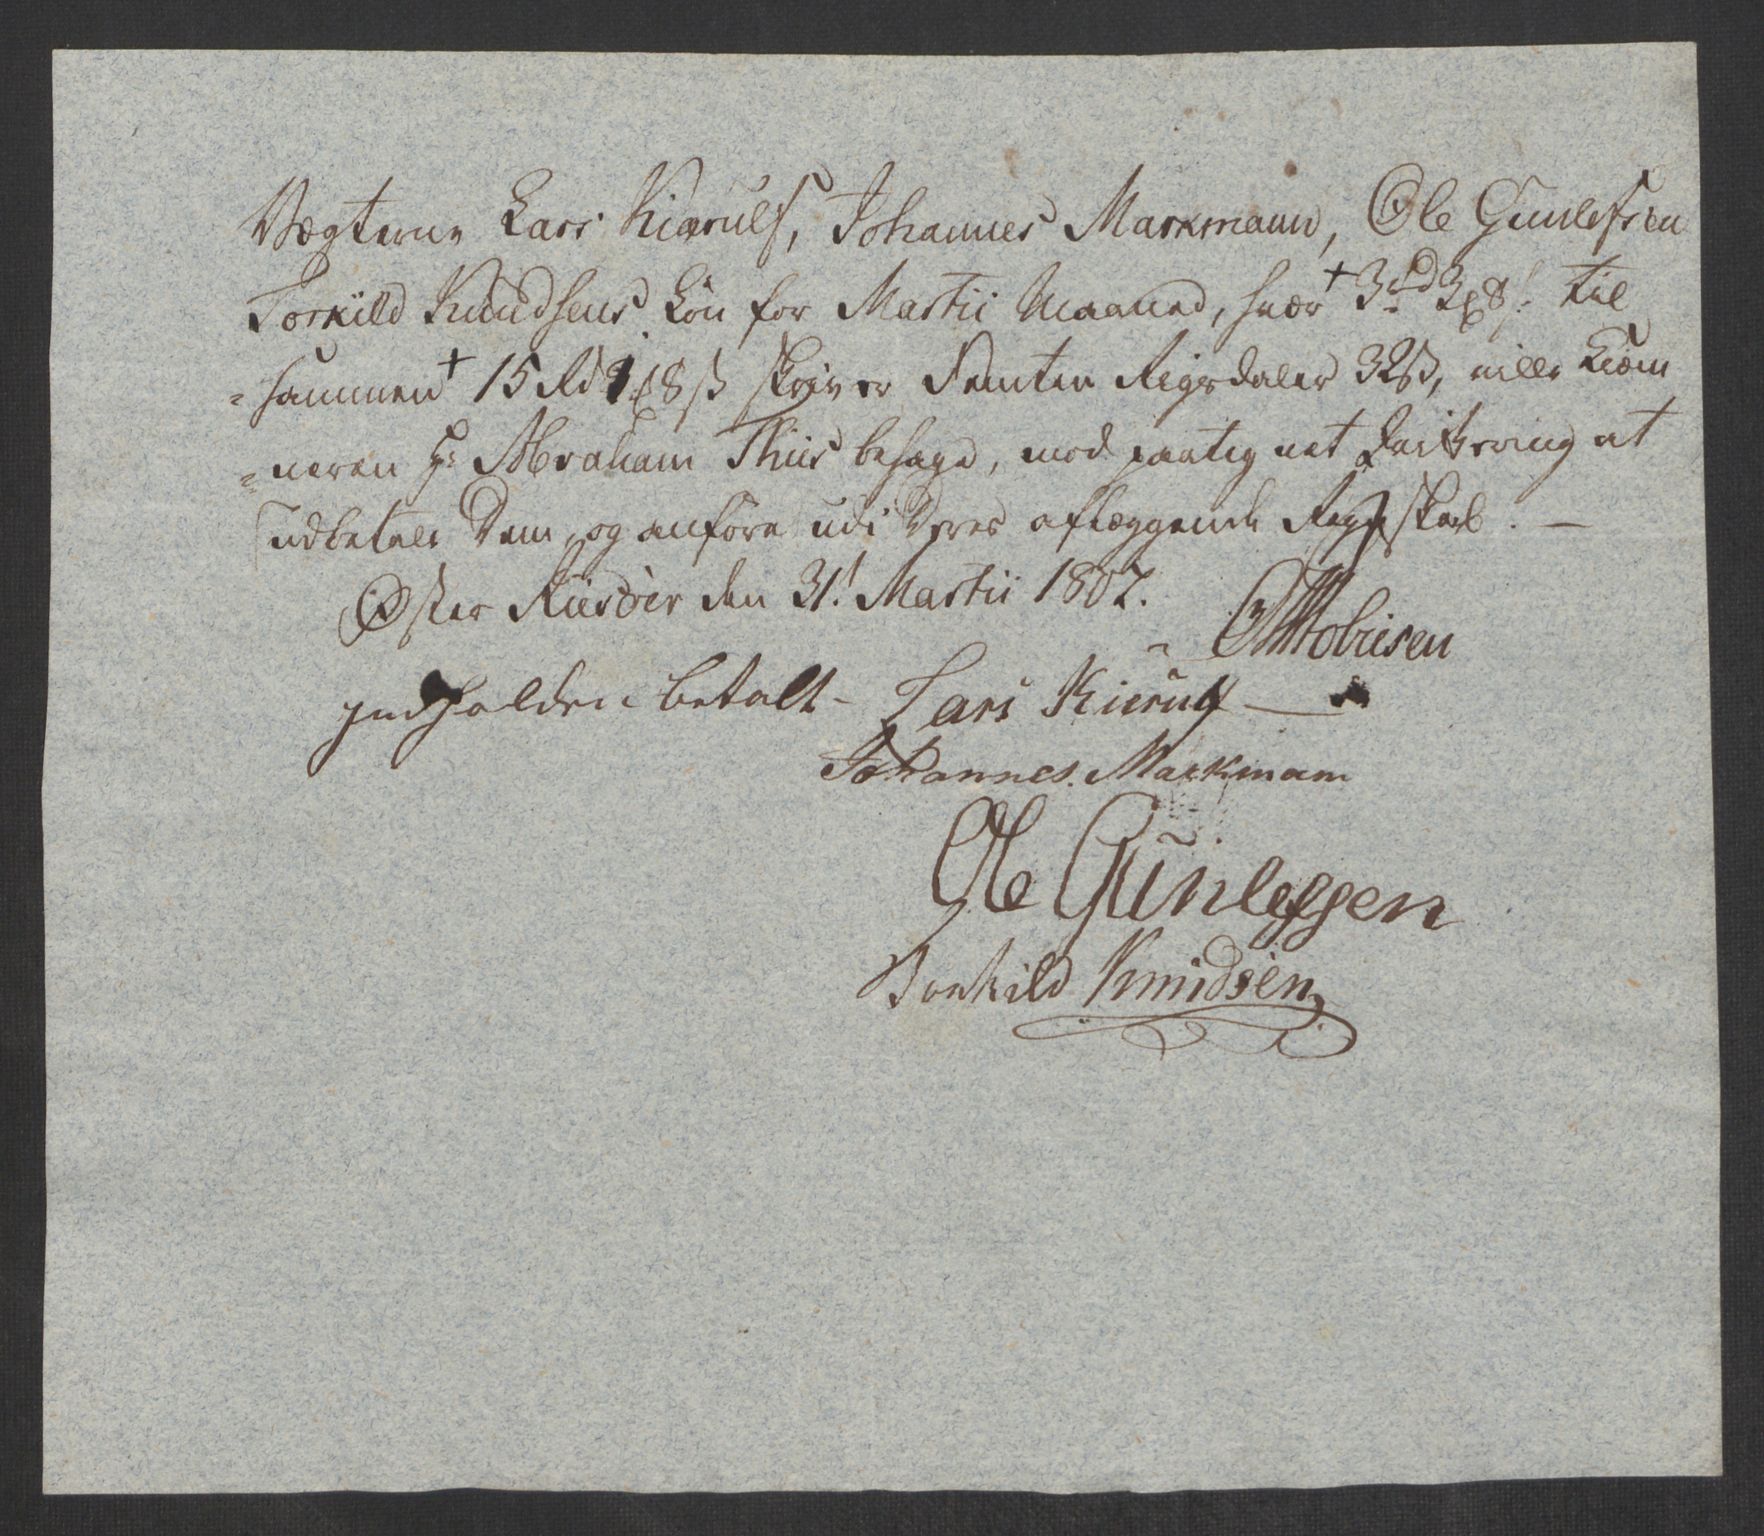 Vægterne Lars Kierulf, Johannes Markmann, Ole Gunlefsen
Torkild Knudsens Løn for Martii Maaned, hvær + 3rd 3 8s. til
= sammen + 15 Rd 8 ß skriver Femten Rigsdaler 32ß, ville Kiem
= neren Hr Abraham Thiis behage, mod paateignet Qvittering at
udbetale Dem, og anføre udi Deres aflæggende Regnskab. —
Øster Riisøer den 31t Martii 1807.
Mobiesen
Indholdene betalt - Lars Kierulf —
Johannes. Markmann
Ole Gunlefsen
Torkild Knudsen